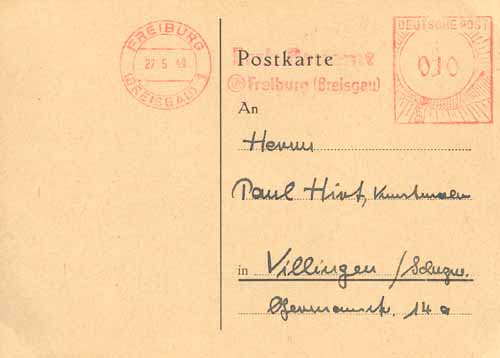 FREIBURG
27.5.49
(BREISGAU) 1
DEUTSCHE POST
010
Freiburg (Breisgau)
Postkarte
An
Herrn
Paul Hirt, Kunstmaler
in Villingen / Schwzw.
Germanstr. 14a